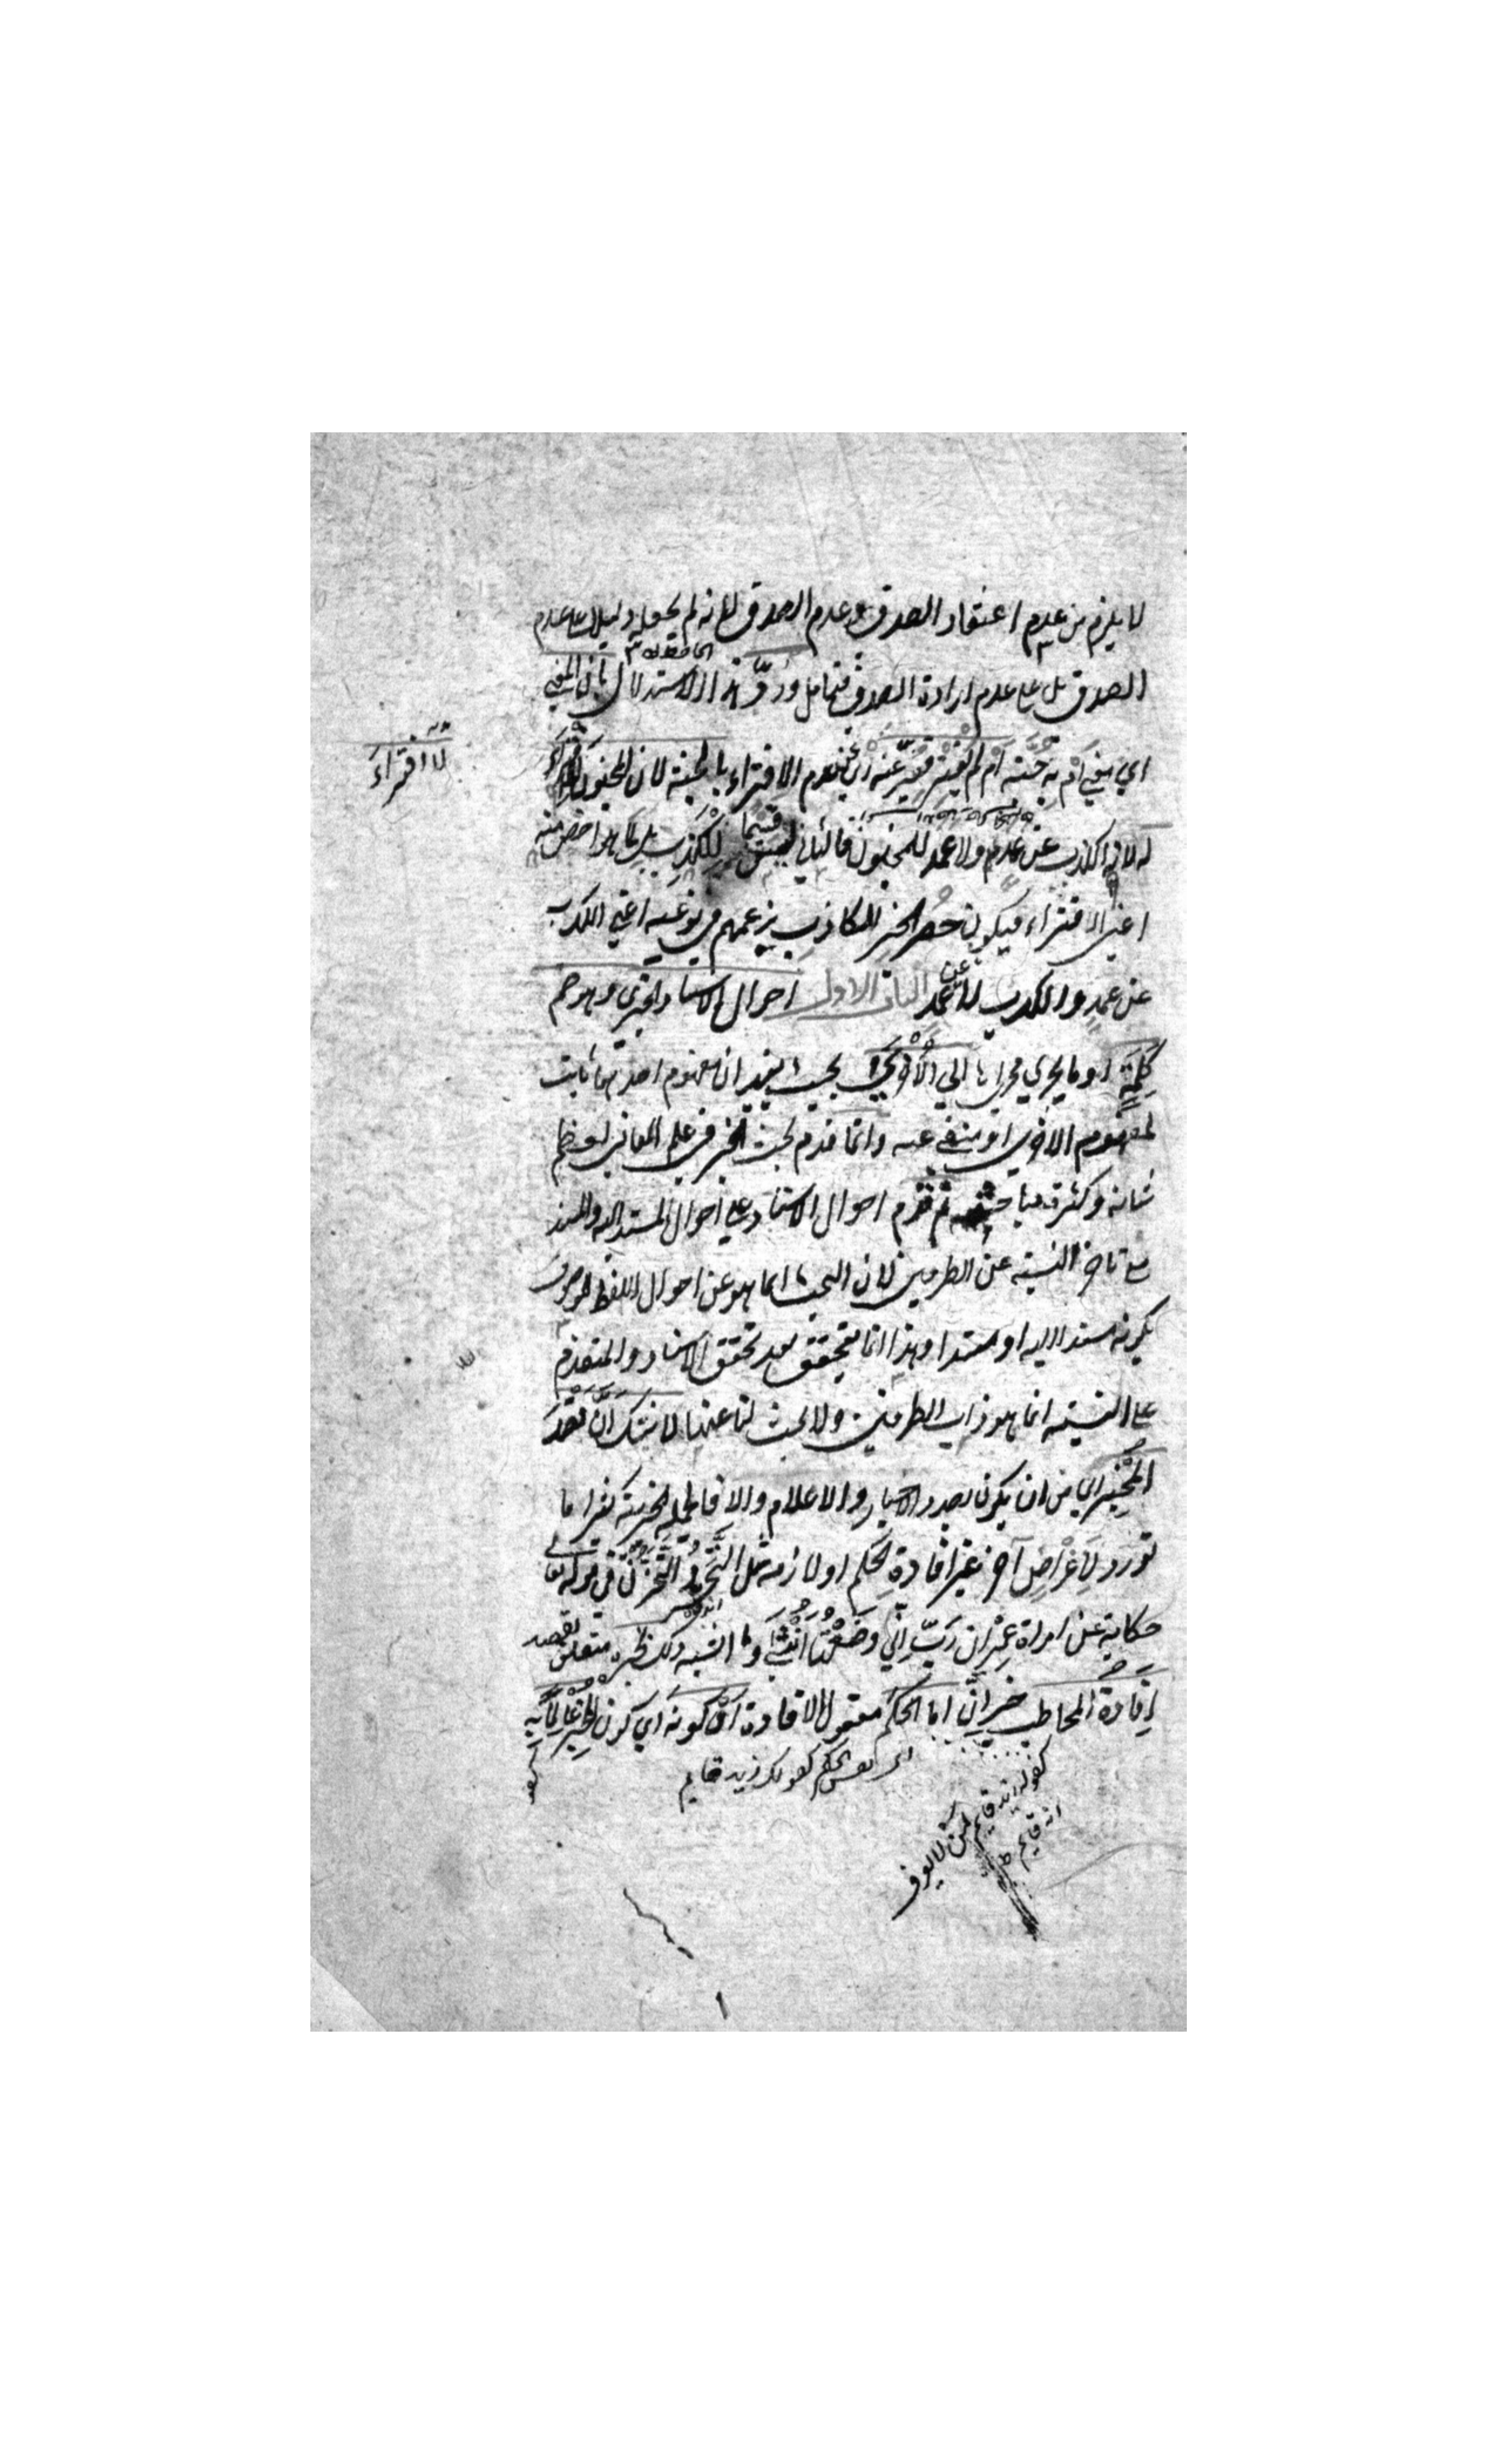 لا يلزم من عدم اعتقاد الصدق عدم الصدق لانه لم يجعله دليلا على عدم
الصدق بل على عدم ارادة الصدق فتامل ورد هذا الاستدلال بان المعنى
اي معنى ام به جنة ام لم يفتر فعبر عنه اي عن عدم الافتراء بالجنة لان المجنون
لا افتراء
له لانه الكذب عن عمد ولا عمد للمجنون فالثاني ليس قسيما للكذب بل لما هو اخص منه
اعني الافتراء فيكون حصر الخبر الكاذب بزعمهم في نوعيه اعني الكذب
عن عمد والكذب لا عن عمد الباب الاول احوال الاسناد الخبري وهو ضم
كلمة او ما يجري مجراها الي الاخري بحيث يفيد ان مفهوم احديهما ثابت
لمفهوم الاخري او منفي عنه وانما قدم بحث الخبر في علم المعاني لعظم
شانه وكثرة مباحثه ثم قدم احوال الاسناد علي احوال المسند اليه والمسند
مع تاخر النسبة عن الطرفين لان البحث انما هو عن احوال اللفظ الموصوف
بكونه مسندا اليه او مسندا وهذا انما يتحقق بعد تحقق الاسناد والمتقدم
علي النسبة انما هو ذات الطرفين ولا بحث لنا عنها لا شك ان قصد
المخبر اي من ان يكون بصدد الاخبار والاعلام والا فالجملة الخبرية كثيرا ما
تورد لاغراض آخر غير افادة الحكم او لازمه مثل التحزن في قوله تعالى
حكاية عن امراة عمران رب اني وضعتها انثى وما اشبه ذلك بخبره متعلق بقصد
افادة المخاطب خبر ان اما الحكم مفعول الافادة او كونه اي كون المخبر عالما به
كقولك زيد قايم
لمن لا يعرف
انه قايم